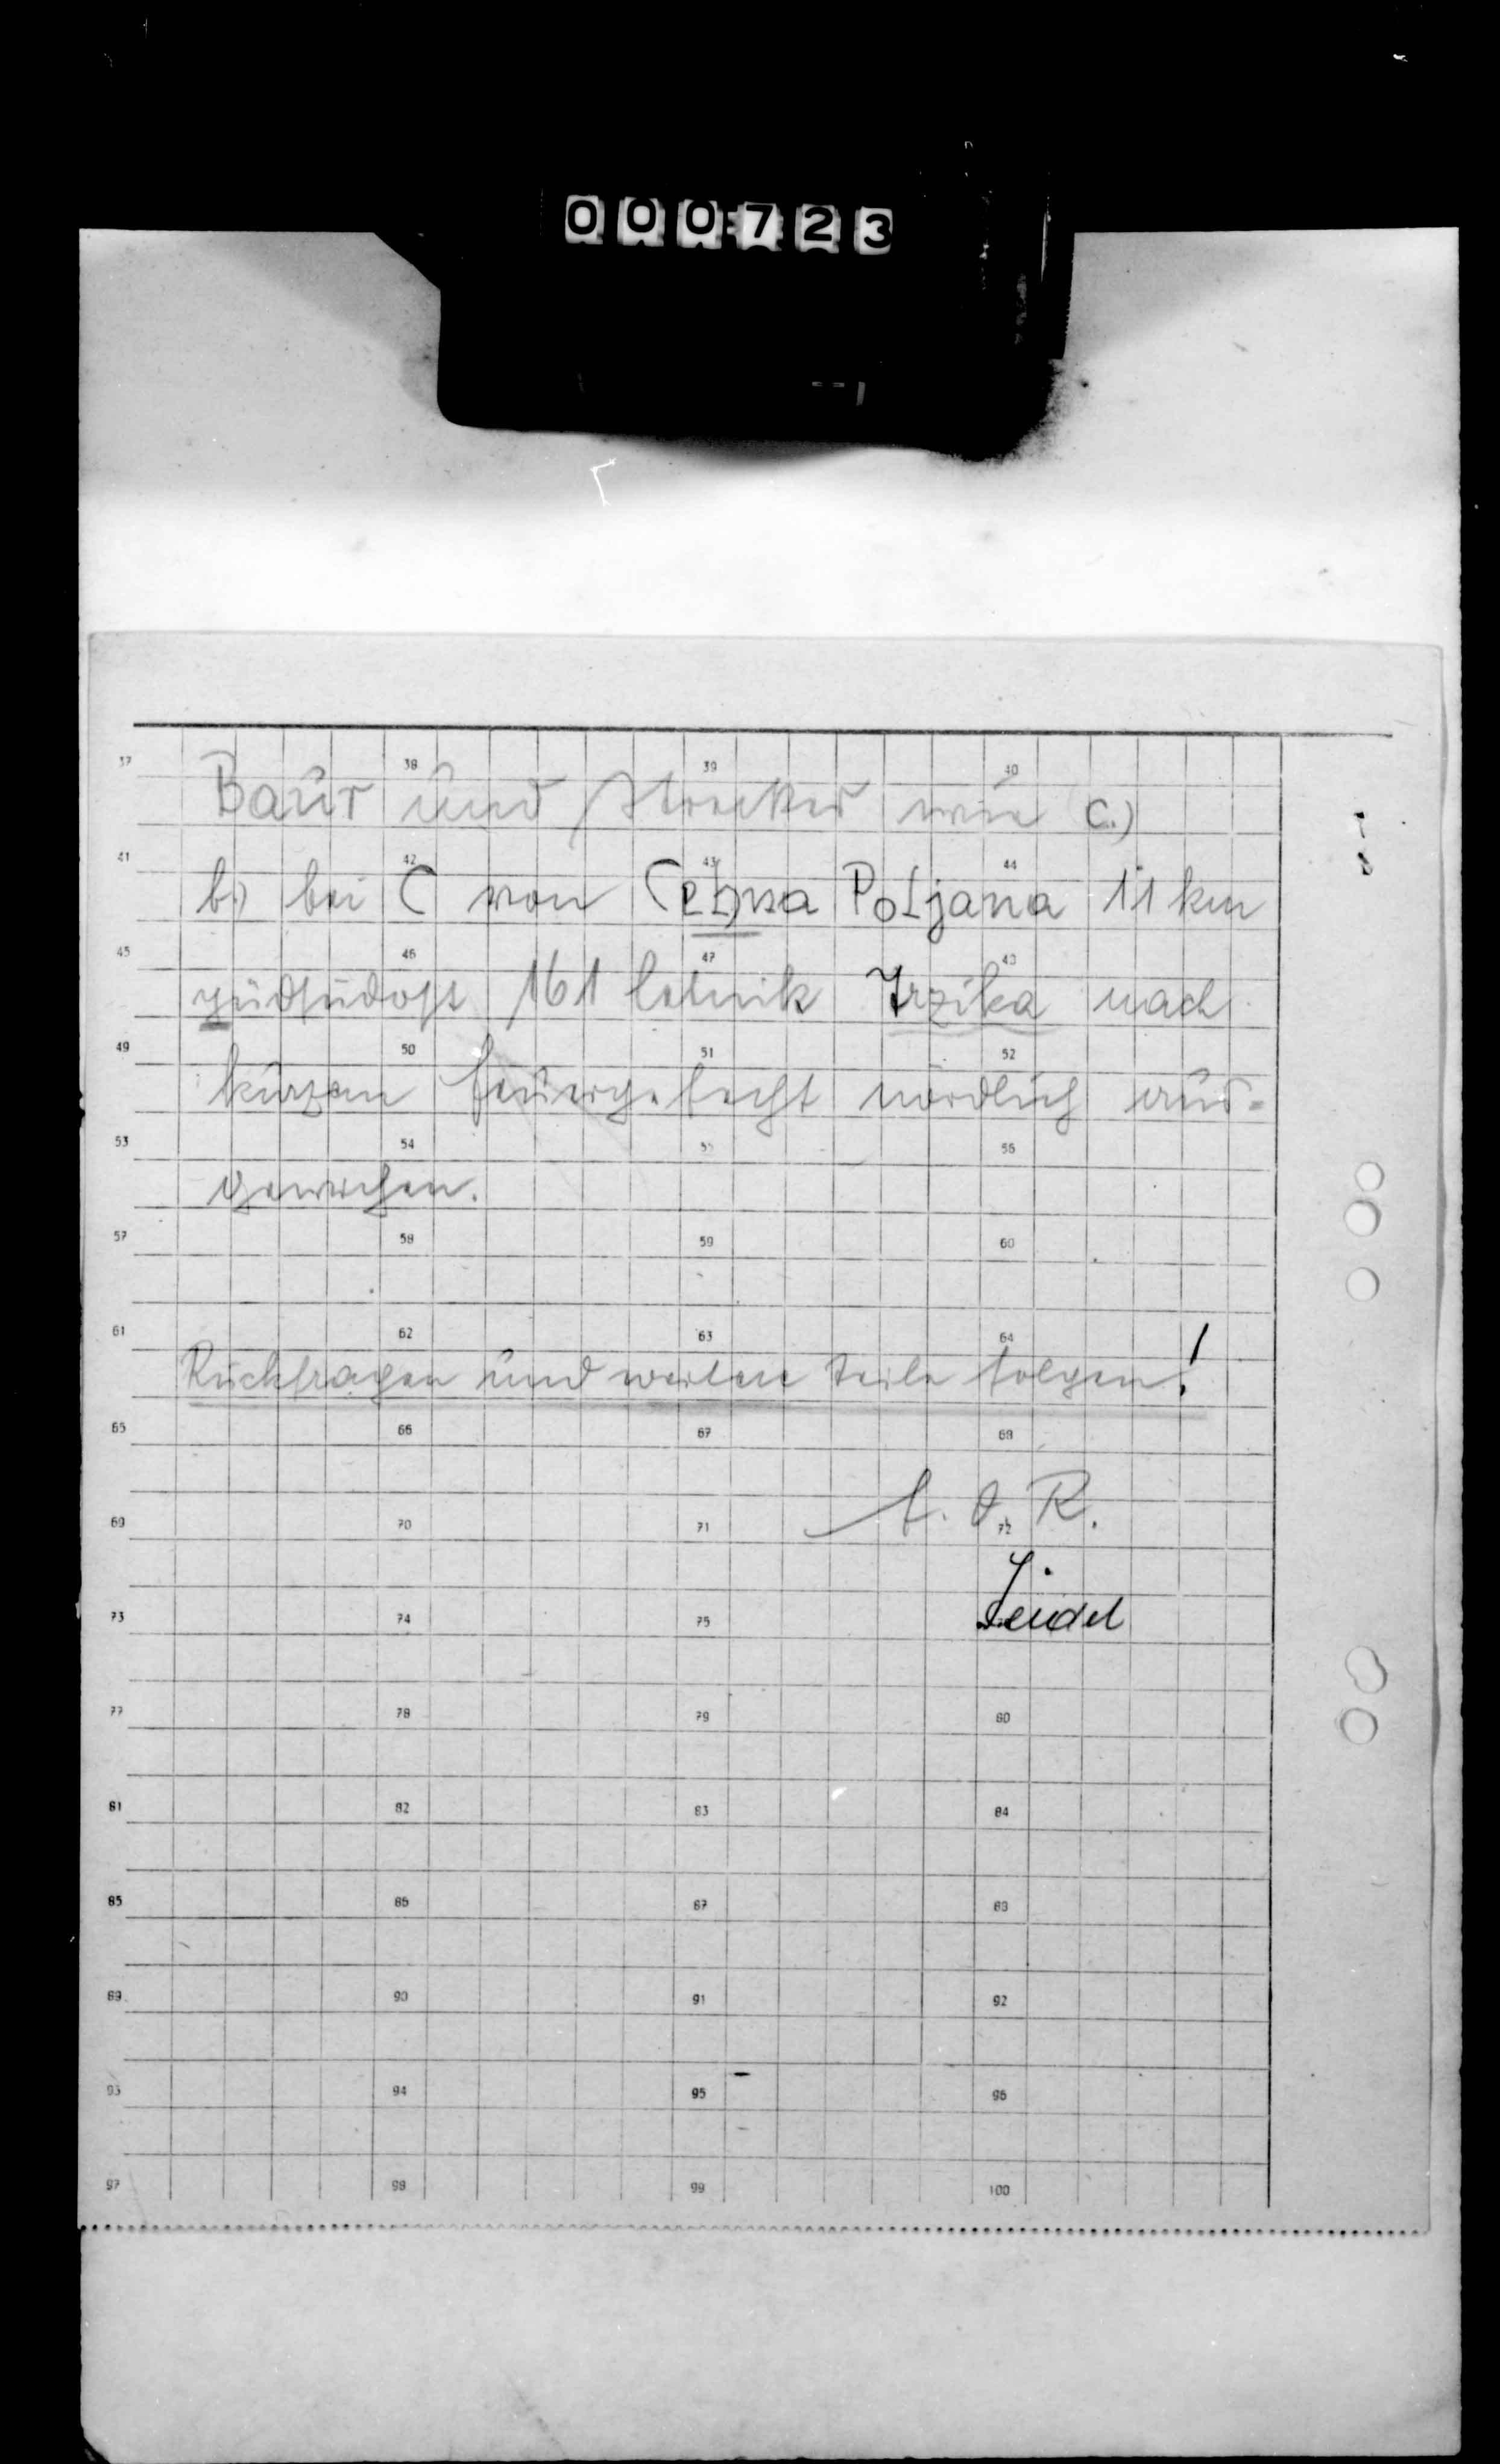 000723
37 38 39 40
Baur und Strecker wie C.)
41 42 43 44
b.) bei C von Poljana 11 km
45 46 47 48
südsüdost 161 nach
49 50 51 52
kurzem Feuergefecht nördlich aus-
53 54 55 56
gewichen.
57 58 59 60
61 62 63 64
Rückfragen und weitere Teile folgen!
65 66 67 68
f. d. R.
69 70 71 72
73 74 75
Seidel
77 78 79 80
81 82 83 84
85 86 87 88
89 90 91 92
93 94 95 96
97 98 99 100